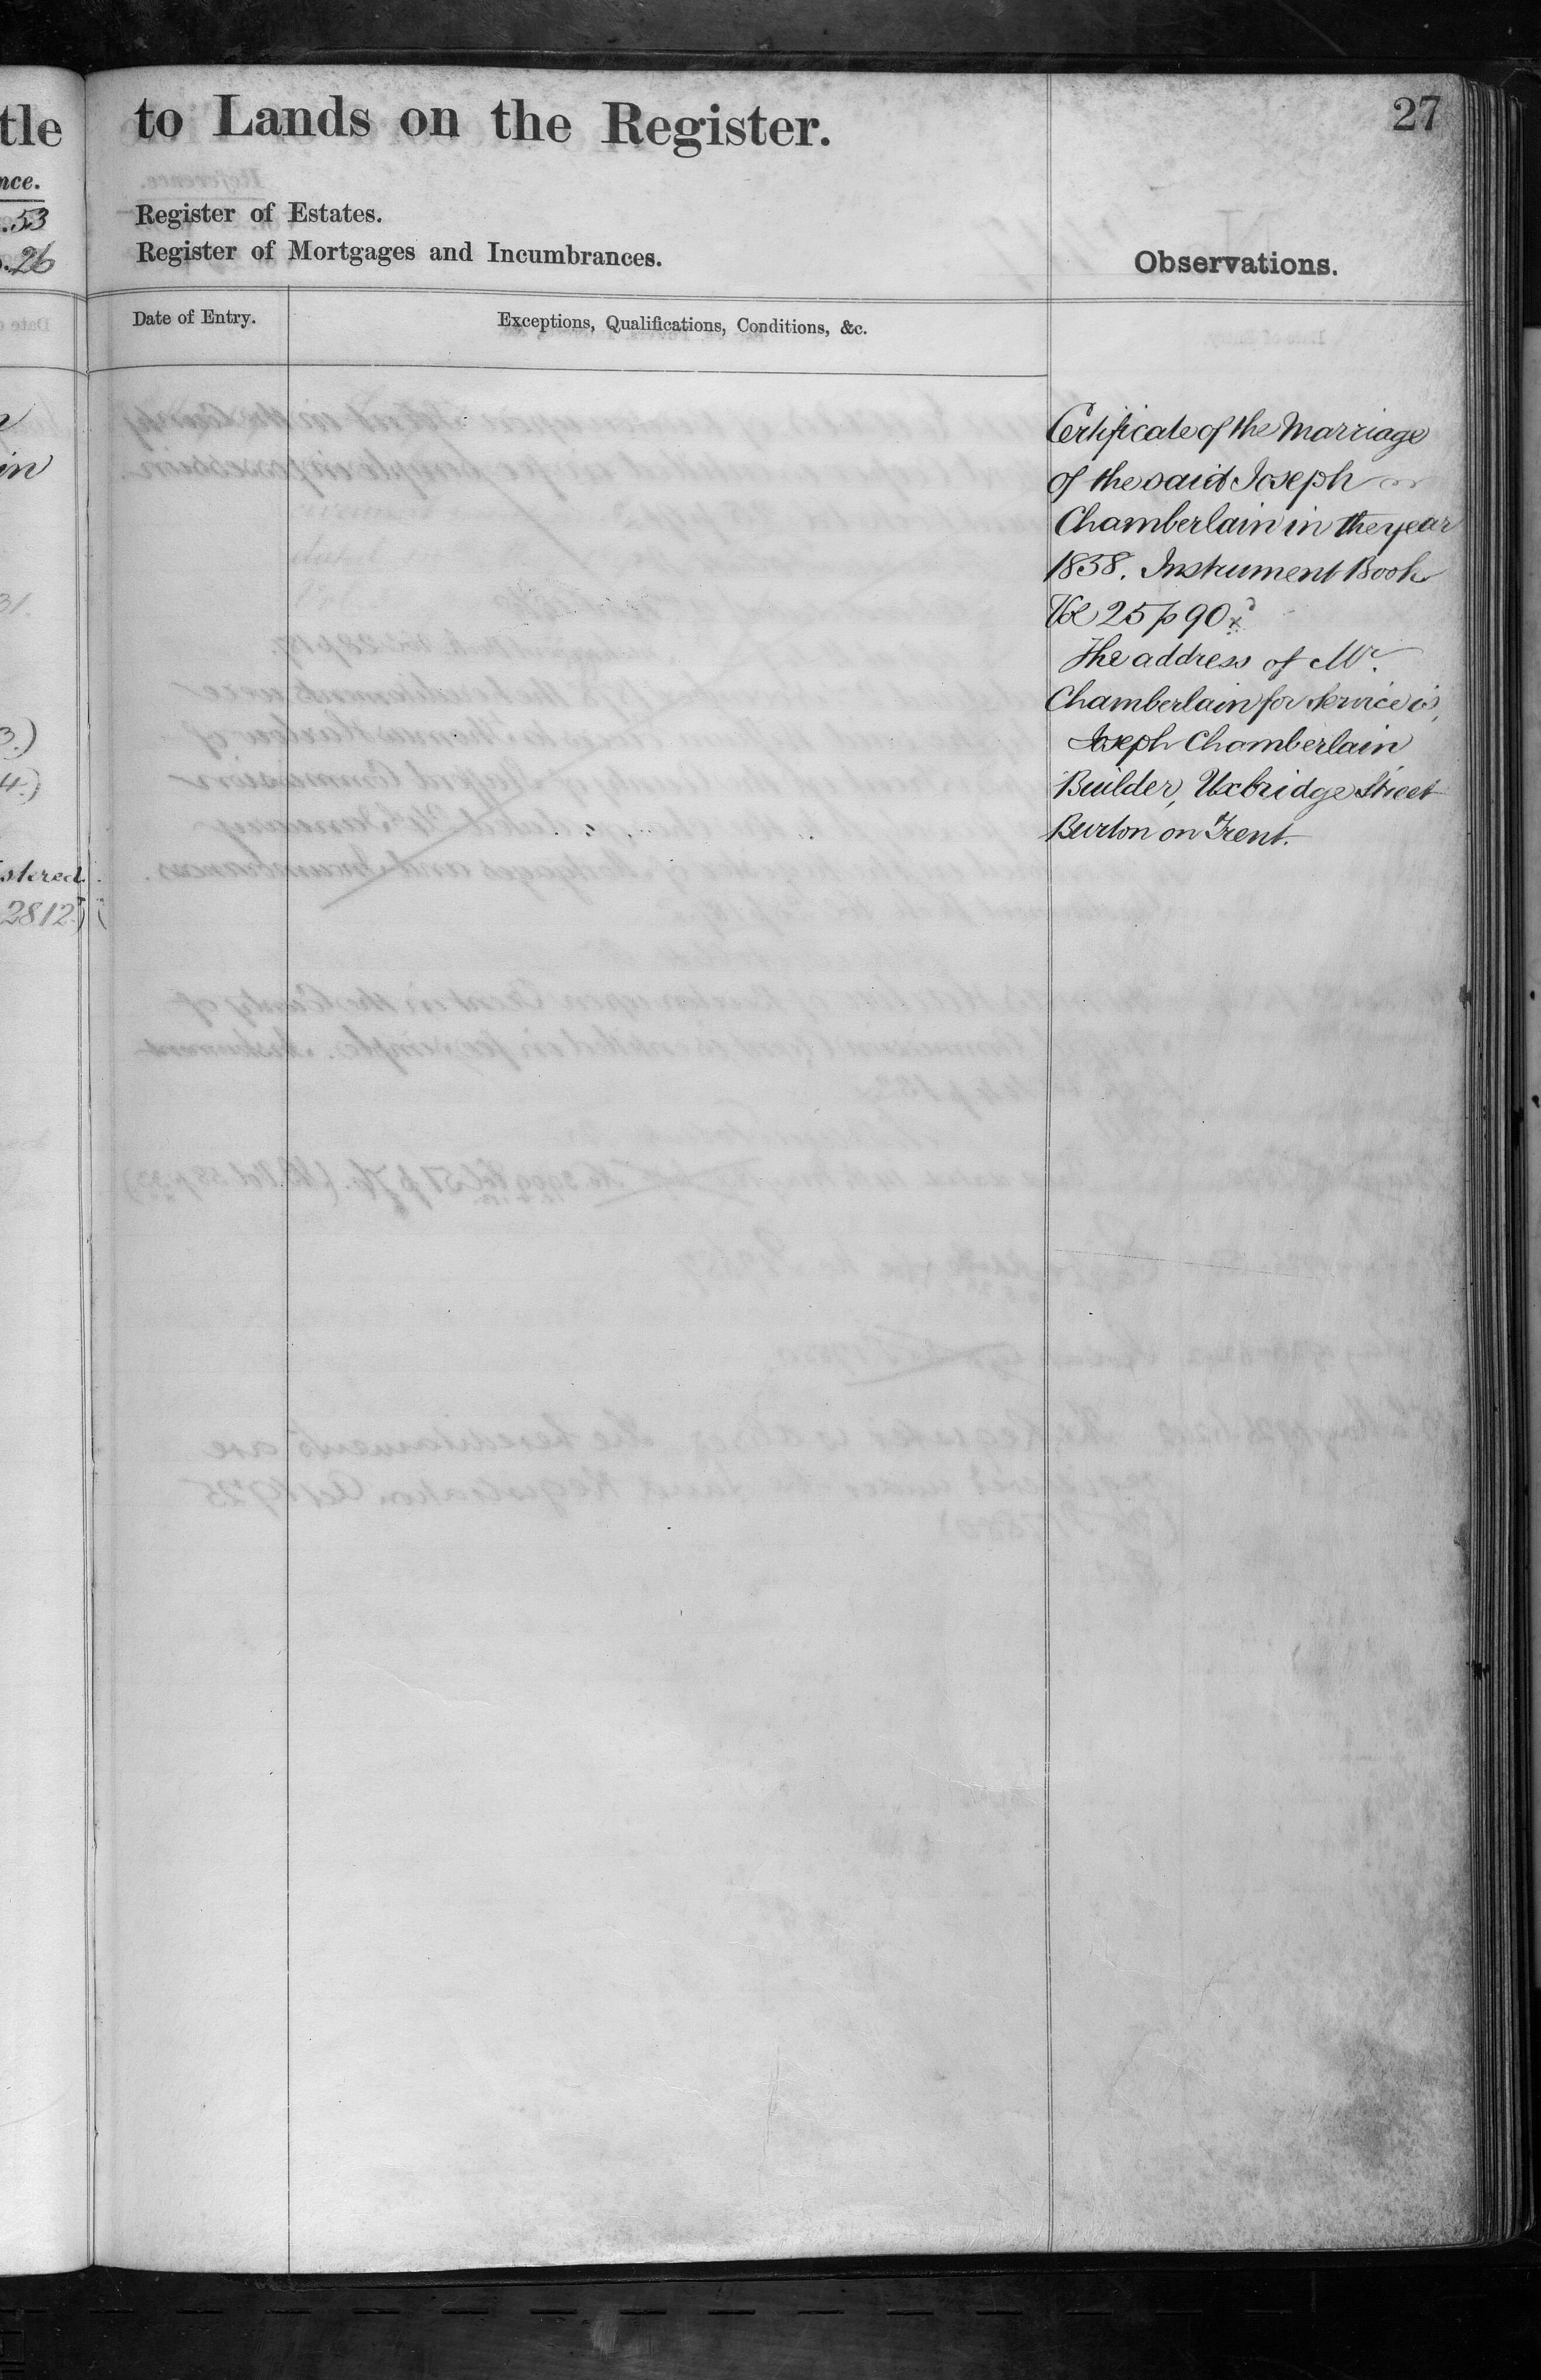 tle
nce.
.53
.26
in
31.
3.)
4.)
stered
2812.)
to Lands on the Register.
27
Register of Estates.
Register of Mortgages and Incumbrances.
Observations.
Date of Entry.
Exceptions, Qualifications, Conditions, &c.
Certificate of the Marriage
of the said Joseph
Chamberlain in the year
1838. Instrument Book
Vol 25 p 90
The address of Mr.
Chamberlain for Service is,
Joseph Chamberlain
Builder, Uxbridge Street
Burton on Trent.